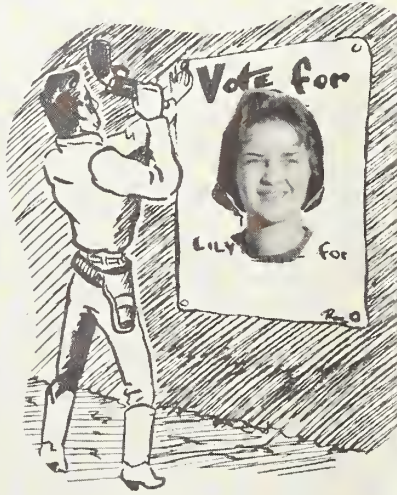 Vote for
LILY for